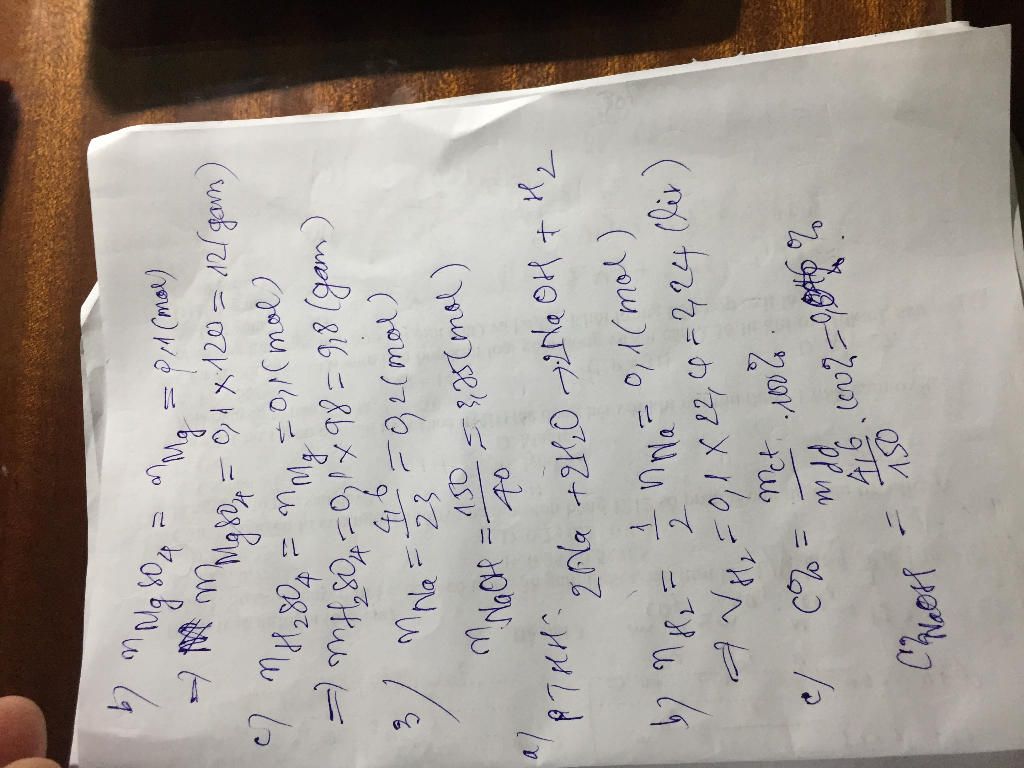 b) nMgSO4 = nMg = 0,1 (mol)
=> mMgSO4 = 0,1 x 120 = 12 (gam)
c) nH2SO4 = nMg = 0,1 (mol)
=> mH2SO4 = 0,1 x 98 = 9,8 (gam)
3) nNa = 4,6/23 = 0,2 (mol)
nNaOH = 150/40 = 3,75 (mol)
a) PTHH: 2Na + 2H2O -> 2NaOH + H2
b) nH2 = 1/2 nNa = 0,1 (mol)
=> VH2 = 0,1 x 22,4 = 2,24 (lít)
c) C% = mct/mdd .100%
C%NaOH = 4,6/150 .100% = %.